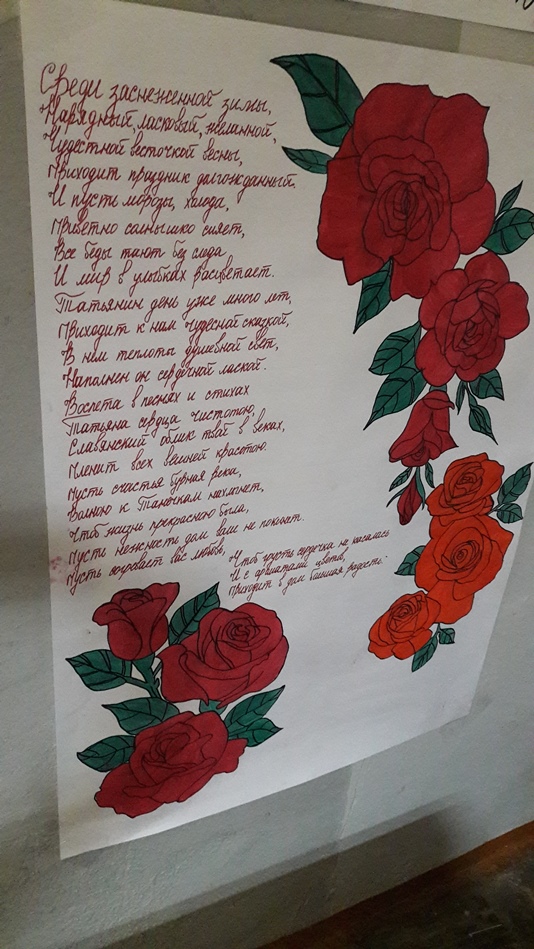 Среди заснеженной зимы,
Нарядный, ласковый, желанной,
Чудестной весточкой весны,
Приходит праздник долгожданный.
И пусть морозы, холода,
Приветно солнышко сияет,
Все беды тают без следа
И мир в улыбках расцветает.
Татьянин день уже много лет,
Приходит к нам чудесной сказкой,
В нём теплоты душевной свет,
Наполнен он сердечной лаской.
Воспета в песнях и стихах
Татьяна сердца чистотою,
Славянский облик твой в веках,
Пленит всех вешней красотою.
Пусть счастья бурная река,
Волною к Танечкам нахлынет,
Чтоб жизнь прекрасною была,
Пусть нежность дом ваш не покинет.
Пусть согревает вас любовь,
Чтоб грусть сердечка не касалась
И с ароматами цветов,
Приходит в дом большая радость.